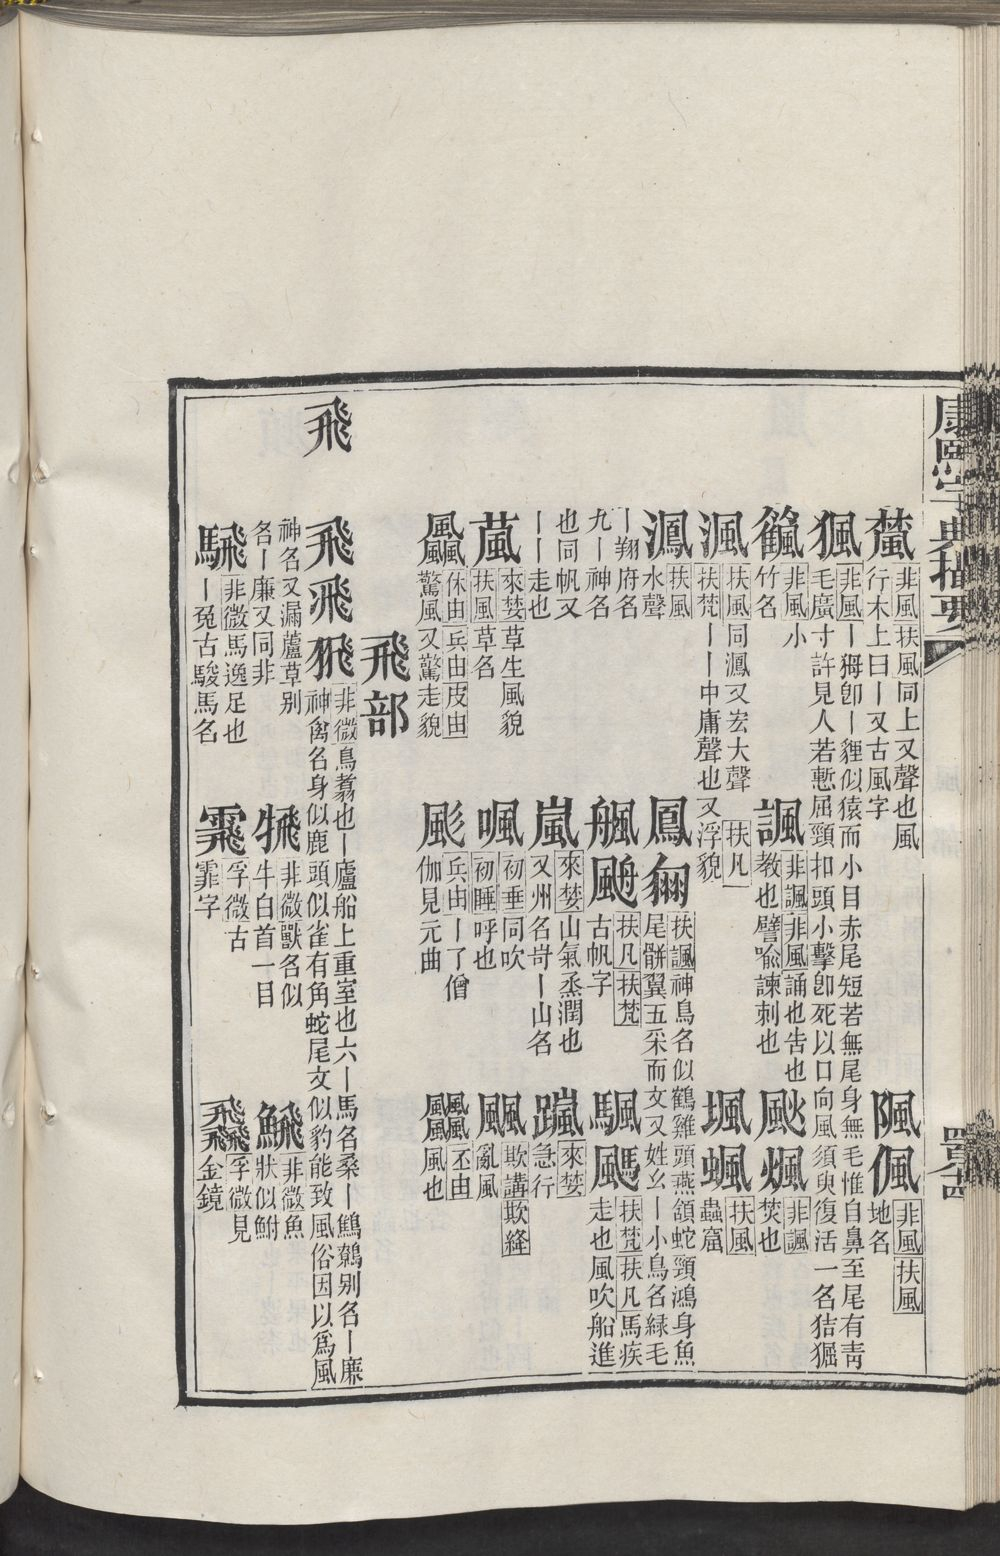 康熙字典撮要
蘴 非風扶風同上又聲也風行木上曰丨又古風字 䧄偑 非風扶風地名
猦 非風丨㺲卽丨貍似猿而小目赤尾短若無尾身無毛惟自鼻至尾有靑毛廣寸許見人若慙屈頸扣頭小擊卽死以口向風須臾復活一名狤㹇
非風小竹名 諷 非諷非風誦也吿也教也譬喩諫刺也 非諷焚也
渢 扶風同㶉又宏大聲扶凡丨扶梵丨丨中庸聲也又浮貌 堸䗙 扶風蟲窟
扶風水聲 鳳 扶諷神鳥名似鶴雞頭燕頷蛇頸鴻身魚尾骿翼五采而文又姓幺丨小鳥名緑毛
丨翔府名九丨神名 扶凡扶梵古帆字 扶梵扶凡馬疾走也風吹船進
也同帆又丨丨走也 嵐 來婪山氣烝潤也又州名岢丨山名 來婪急行
葻 來婪草生風貌扶風草名 㗒 初垂同吹初睡呼也 欺講欺絳亂風
飍 休由兵由皮由驚風又驚走貌 彪 兵由丨了僧伽見元曲 丕由風也
飛部
飛 飛 非微鳥翥也丨廬船上重室也六丨馬名桑丨鷓鴣别名丨廉神禽名身似鹿頭似雀有角蛇尾文似豹能致風俗因以爲風
神名又漏蘆草别名丨廉又同非 非微獸名似牛白首一目 非微魚狀似鮒
騛 非微馬逸足也丨兔古駿馬名 䬠 孚微古霏字 孚微見金鏡